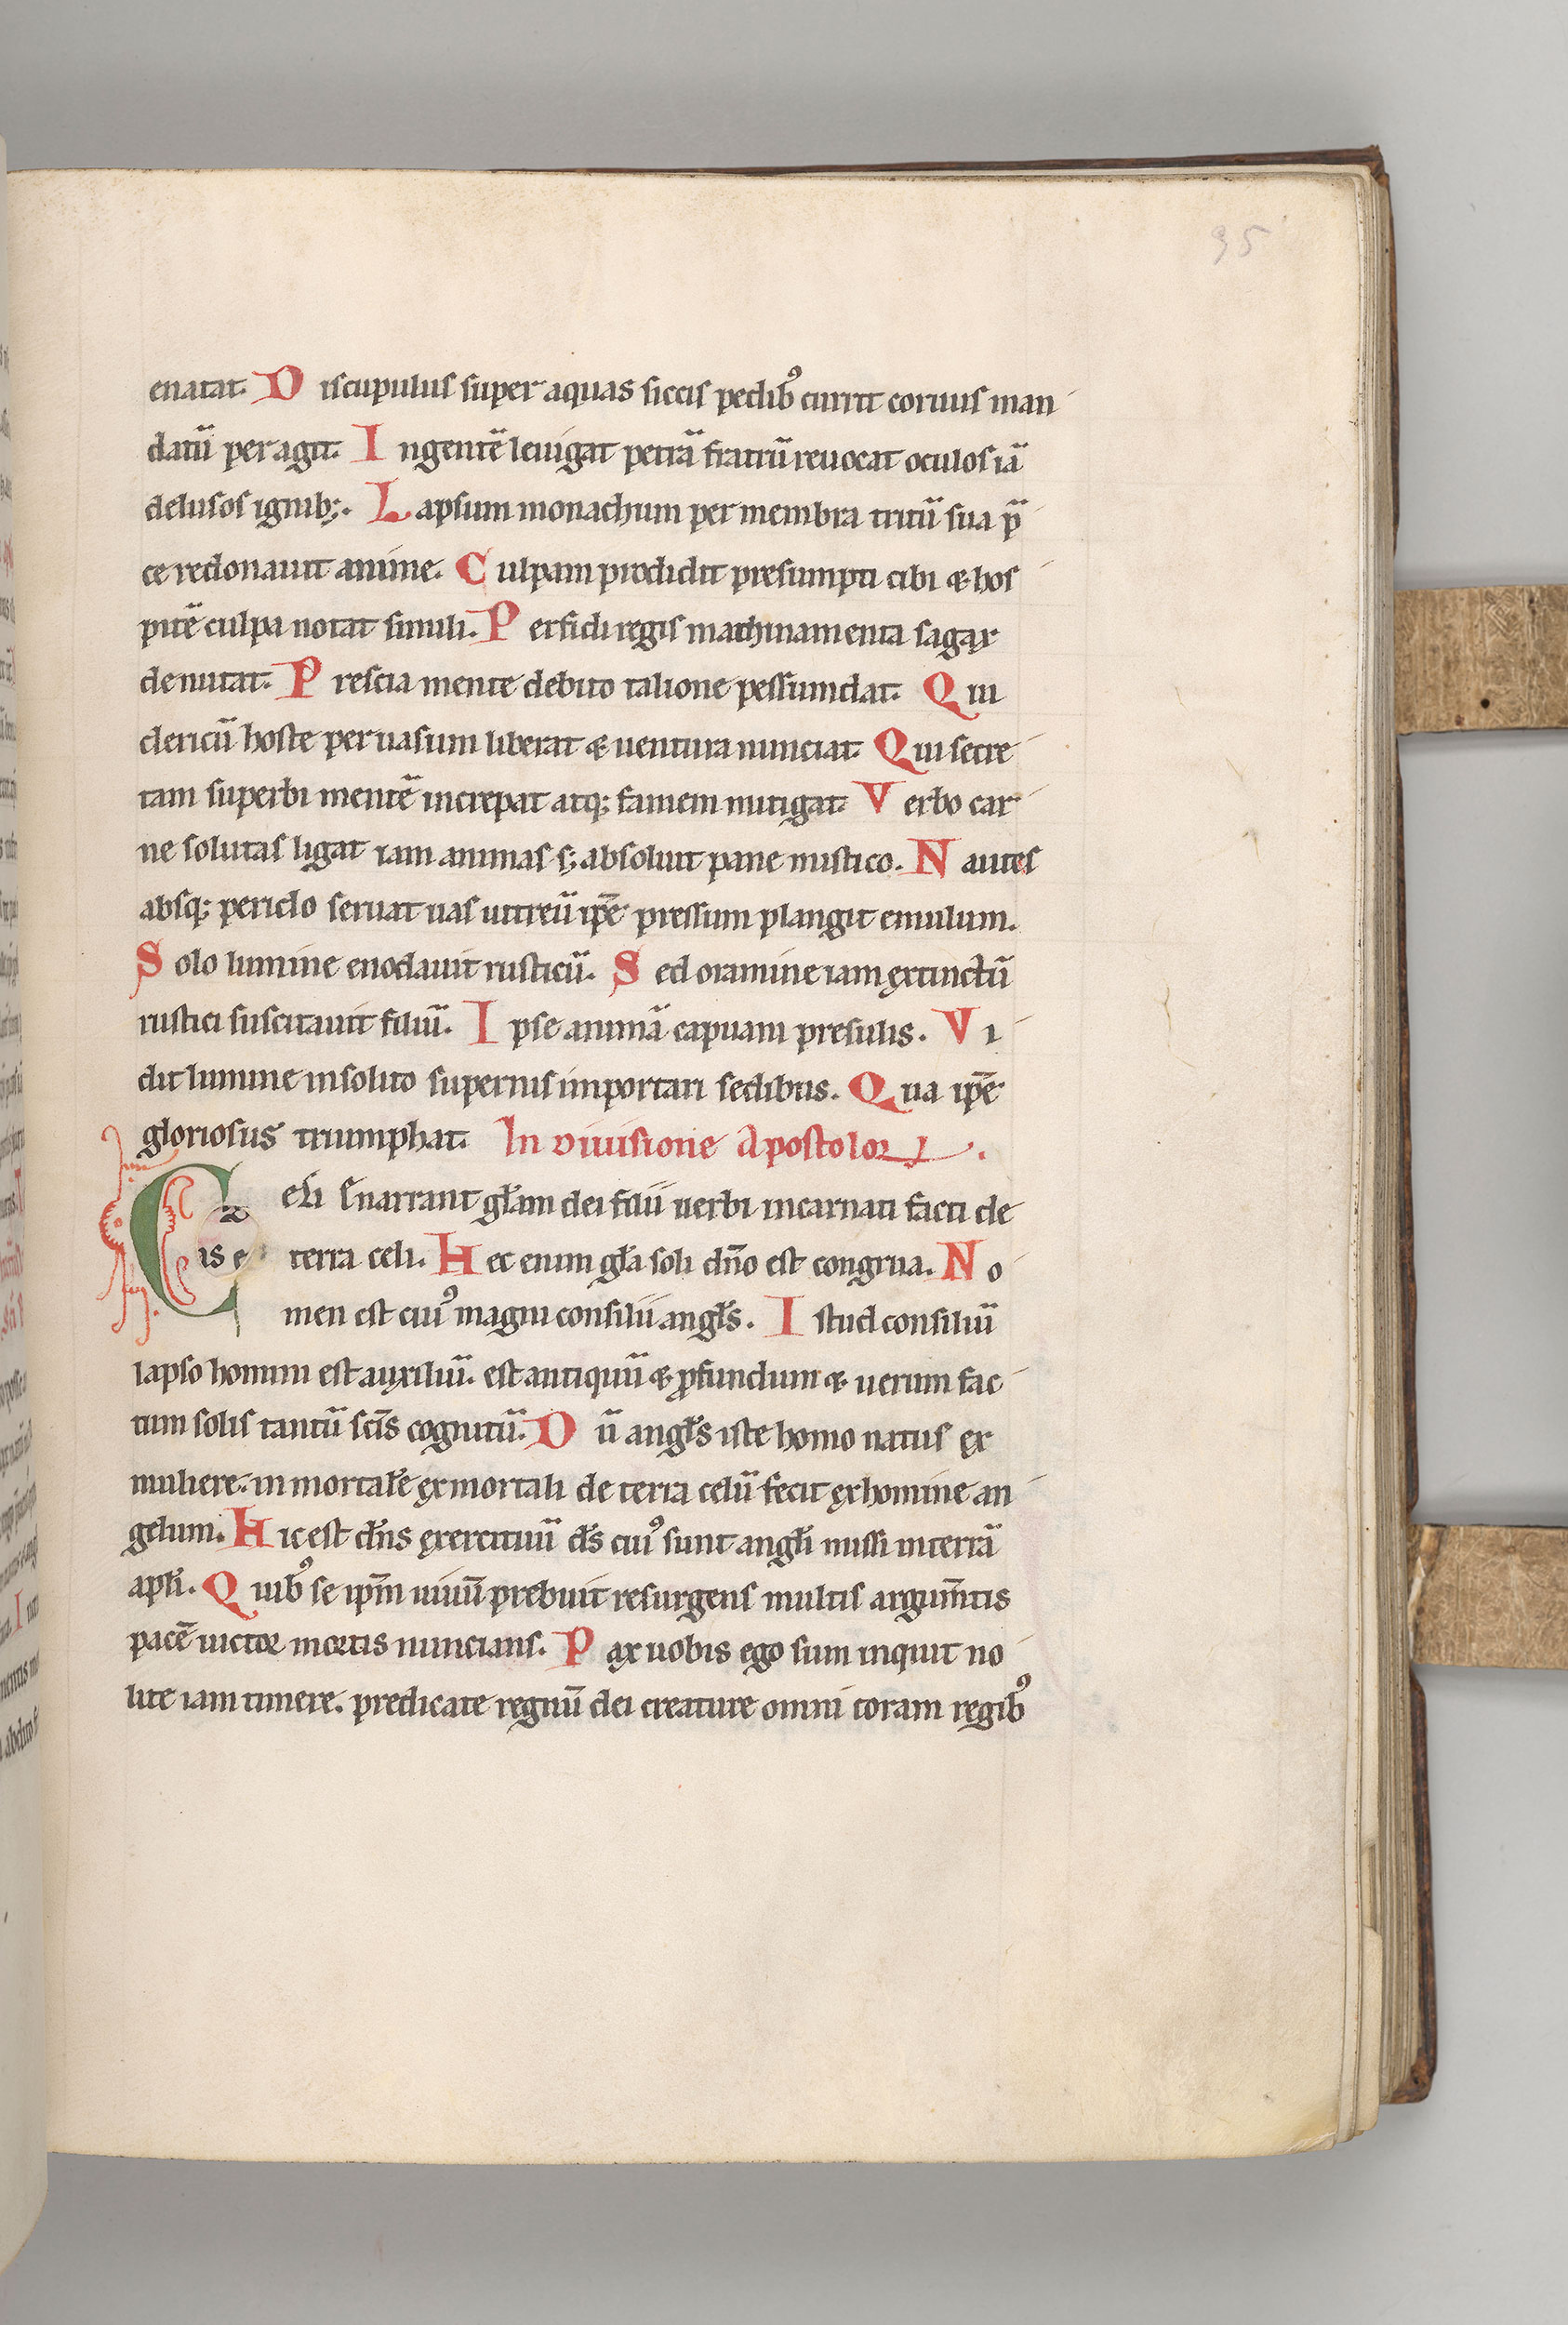 95
enatat. D iscupulus super aquas siccis pedibꝰ currit coruus man
datū peragit. I ngentē leuigat petrā fratrū reuocat oculos iā
delusos ignib;. L apsum monachum per membra tritū sua p̄
ce redonauit anime. C ulpam prodidit presumpti cibi & hos
pitē culpa notat simili. P erfidi regis machinamenta sagax
denutat. P rescia mente debito talione pessumdat. Q ui
clericū hoste peruasum liberat & uentura nunciat. Q ui secre
tam superbi mentē increpat atq; famem mitigat. V erbo car
ne solutas ligat iam animas s; absoluit pane mistico. N autes
absq; periclo seruat uas uitreū ip̄e pressum plangit emulum.
S olo lumine enodauit rusticū. S ed oramine iam extinctū
rustici suscitauit filiū. I pse animā capuani presulis. V i
dit lumine insolito supernis importari sedibus. Q ua ip̄e
gloriosus triumphat. In diuisione Apostoloꝝ.
C eli enarrant gl̄am dei filii uerbi incarnati facti de
terra celi. H ec enim gl̄a soli dn̄o est congrua. N o
men est eiuꝰ magni consilii angl̄s. I stud consiliū
lapso homini est auxiliū. est antiquū & ꝓfundum & uerum fac
tum solis tantū sc̄is cognitū. D ū angl̄s iste homo natus ex
muliere. inmortal̄e ex mortali de terra celū fecit ex homine an
gelum. H ic est dn̄s exercituū ds̄ cuiꝰ sunt angl̄i missi in terrā
apl̄i. Q uibꝰ se ip̄m uiuū prebuit resurgens multis argum̄tis
pacē uictor mortis nuncians. P ax uobis ego sum inquit no
lite iam timere. predicate regnū dei creature omni coram regibꝰ